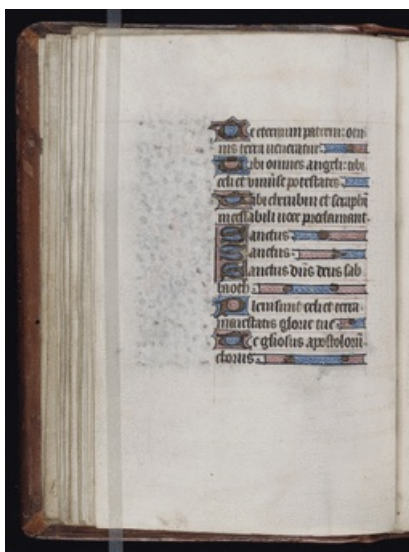 Te eternum patrem: om
nis terra ueneratur.
Tibi omnes angeli: tibi
celi et uniuerse potestates.
Tibi cherubin et seraphin
incessabili uoce proclamant.
Sanctus
Sanctus.
Sanctus dns deus sab
baoth.
Pleni sunt celi et terra
maiestatis glorie tue.
Te gliosus apostolorum
chorus.